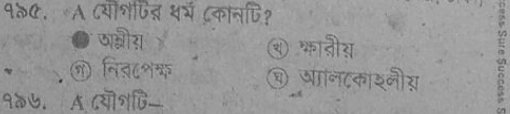 ৭৯৫. A যৌগটির ধর্ম কোনটি?
অম্লীয়
খ ক্ষারীয়
গ নিরপেক্ষ
ঘ অ্যালকোহলীয়
৭৯৬. A যৌগটি–
Sure Success